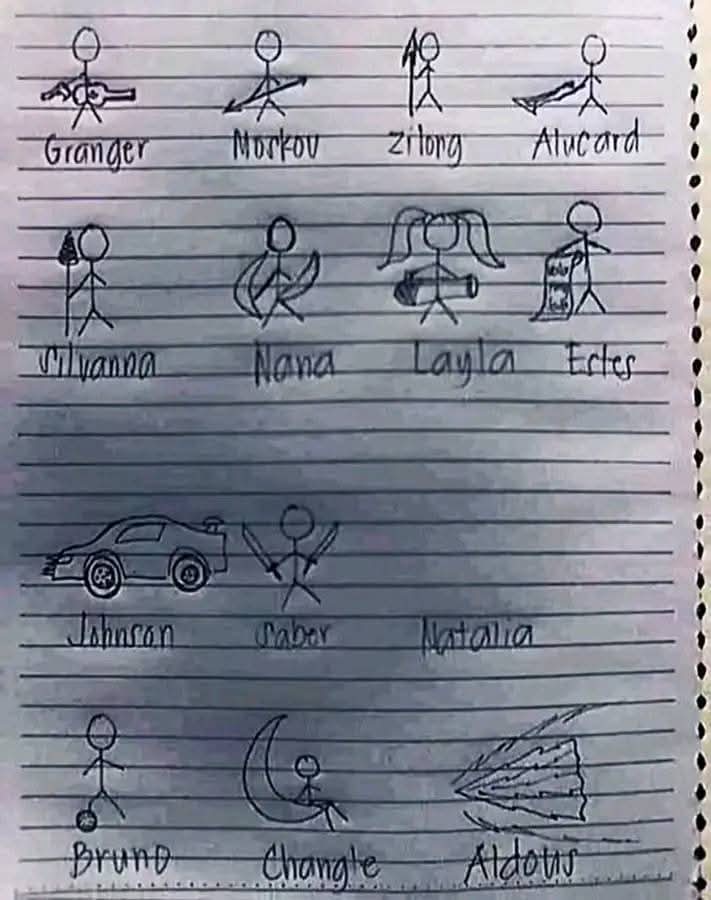 Granger Moskov Zilong Alucard
Silvanna Nana Layla Estes
Johnson Saber Natalia
Bruno Changle Aldous